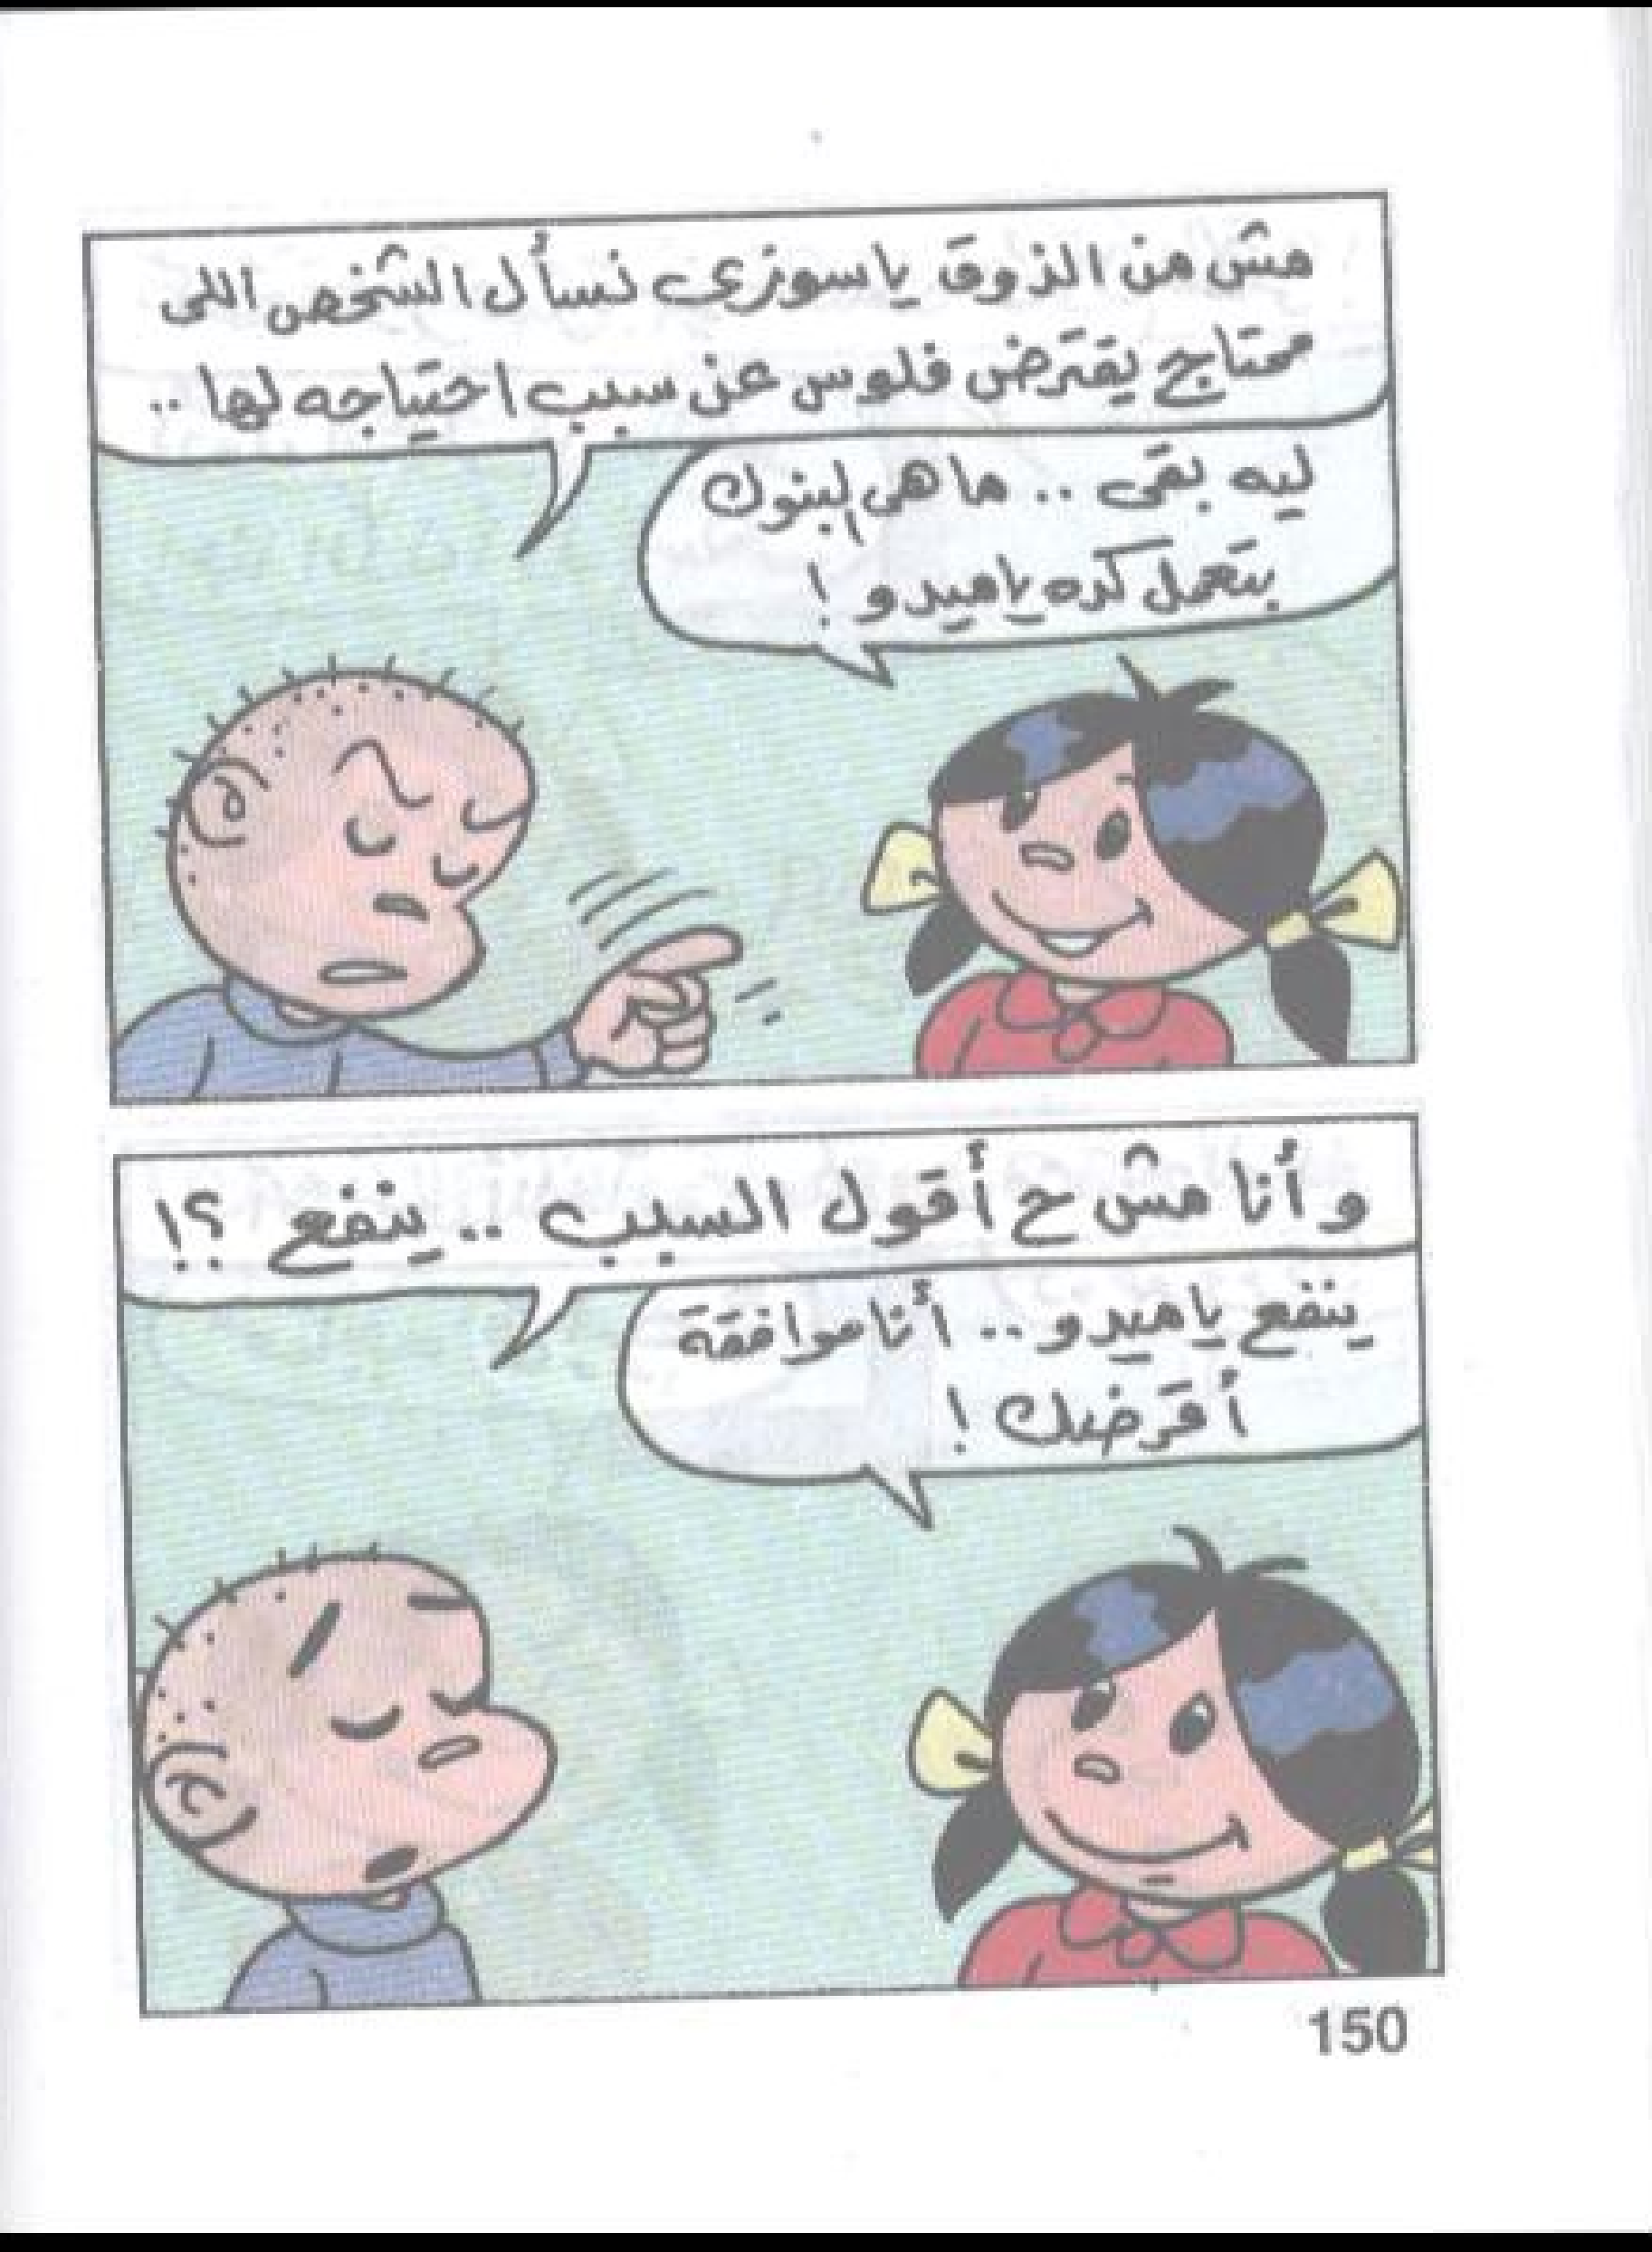 مش من الذوق ياسوزى نسأل الشخص اللى
محتاج يقترض فلوس عن سبب احتياجه لها ..
ليه بقى .. ما هى البنوك
بتعمل كده يا ميدو !
و أنا مش ح أقول السبب .. ينفع ؟!
ينفع يا ميدو .. أنا موافقة
أقرضك !
150